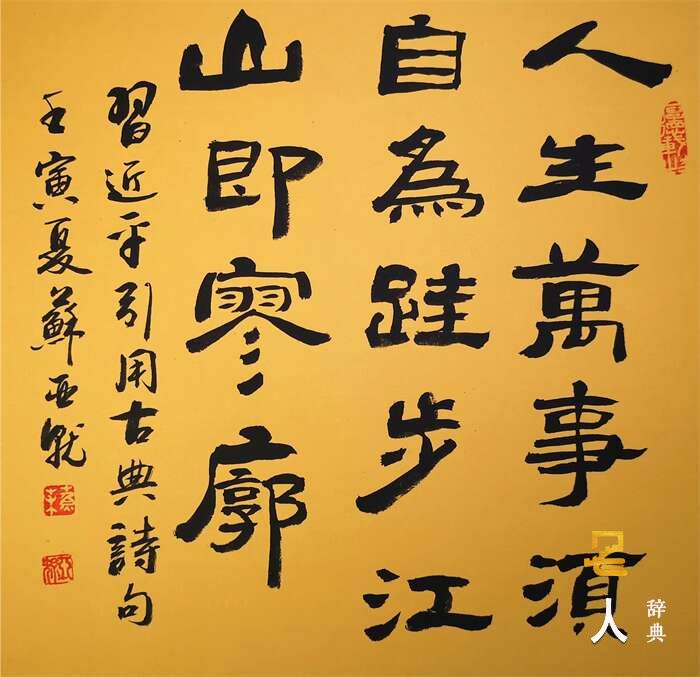 人生萬事湏
自為跬步江
山即寥廓
習近平引用古典詩句
壬寅夏蘇亞
人
辞典